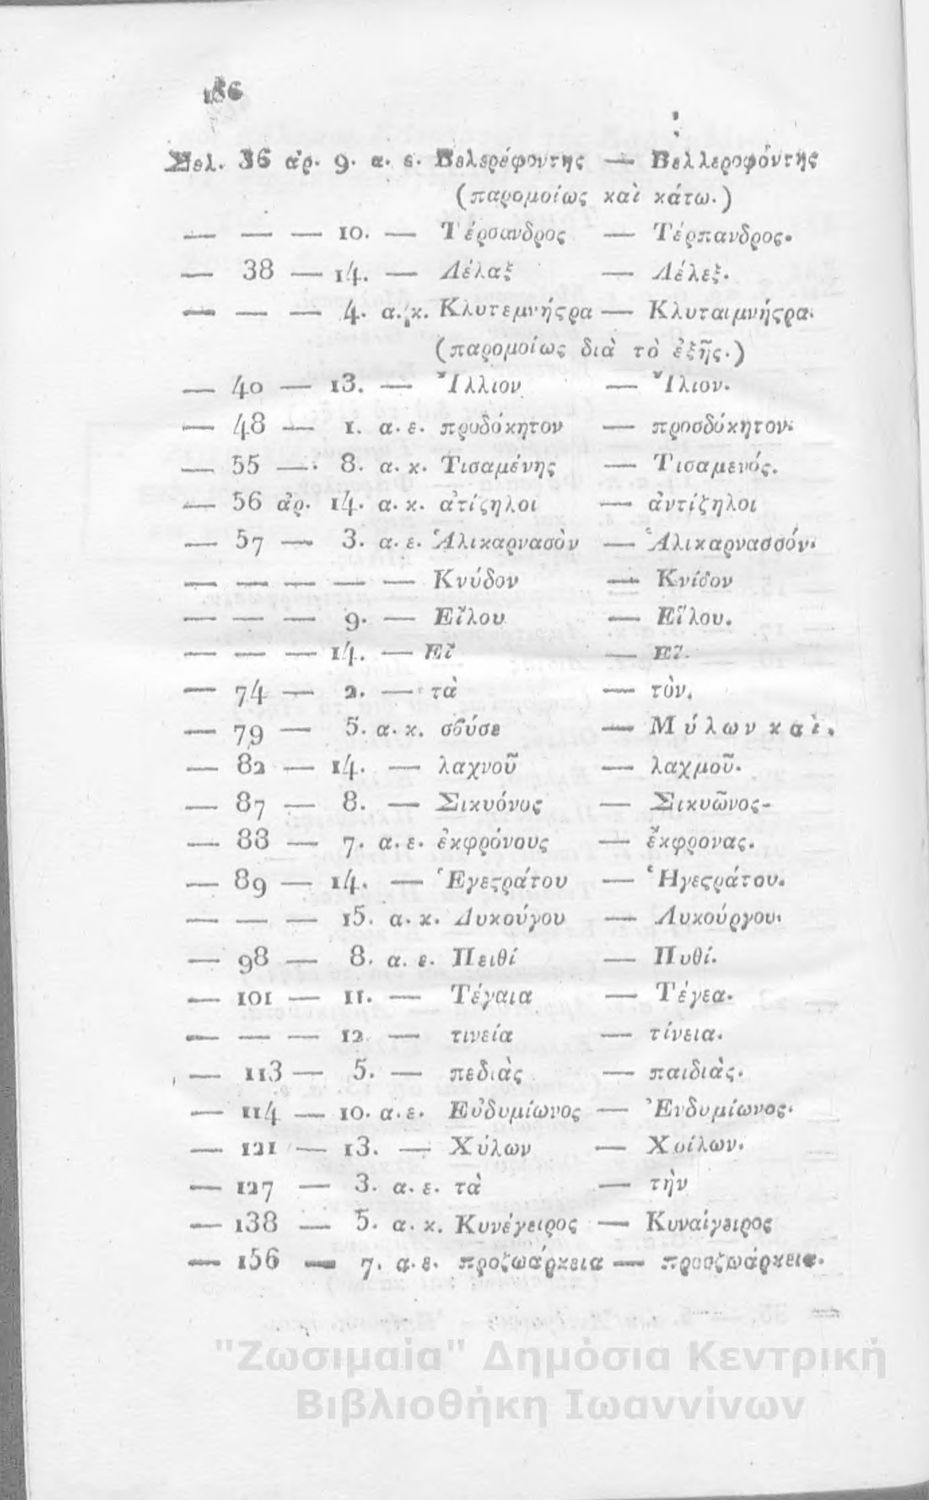 186
Σελ. 36 ἀρ. 9. α. ε. Βελερέφοντης — Βελλεροφόντης
(παρομοίως καὶ κάτω.)
— — — 10. — Τέρσανδρος — Τέρπανδρος.
— 38 — 14. — Λέλαξ — Λέλεξ.
— — — 4. α. κ. Κλυτεμνήςρα — Κλυταιμνήςρα.
(παρομοίως διὰ τὸ ἑξῆς.)
— 40 — 13. — Ἴλλιον — Ἴλιον.
— 48 — 1. α. ε. πρυδόκητον — προσδόκητον.
— 55 — 8. α. κ. Τισαμένης — Τισαμενός.
— 56 ἀρ. 14. α. κ. ἀτίζηλοι — ἀντίζηλοι
— 57 — 3. α. ε. Ἁλικαρνασὸν — Ἁλικαρνασσόν.
— — — — — Κνύδον — Κνίδον
— — — 9. — Εἴλου — Εἵλου.
— — — 14. — Εἴ — Εἵ.
— 74 — 2. — τὰ — τὸν.
— 79 — 5. α. κ. σούσε — Μύλων καὶ.
— 82 — 14. — λαχνοῦ — λαχμοῦ.
— 87 — 8. — Σικυόνος — Σικυῶνος.
— 88 — 7. α. ε. ἐκφρόνους — ἔκφρονας.
— 89 — 14. — Ἑγεςράτου — Ἡγεςράτου.
— — — 15. α. κ. Λυκούγου — Λυκούργου.
— 98 — 8. α. ε. Πειθί — Πυθί.
— 101 — 11. — Τέγαια — Τέγεα.
— — — 12 — τινεία — τίνεια.
— 113 — 5. — πεδιὰς — παιδιὰς.
— 114 — 10. α. ε. Εὐδυμίωνος — Ἐνδυμίωνος.
— 121 — 13. — Χύλων — Χοίλων.
— 127 — 3. α. ε. τὰ — τὴν
— 138 — 5. α. κ. Κυνέγειρος — Κυναίγειρος
— 156 — 7. α. ε. προζωάρκεια — προσζωάρκεια.
"Ζωσιμαία" Δημόσια Κεντρική
Βιβλιοθήκη Ιωαννίνων